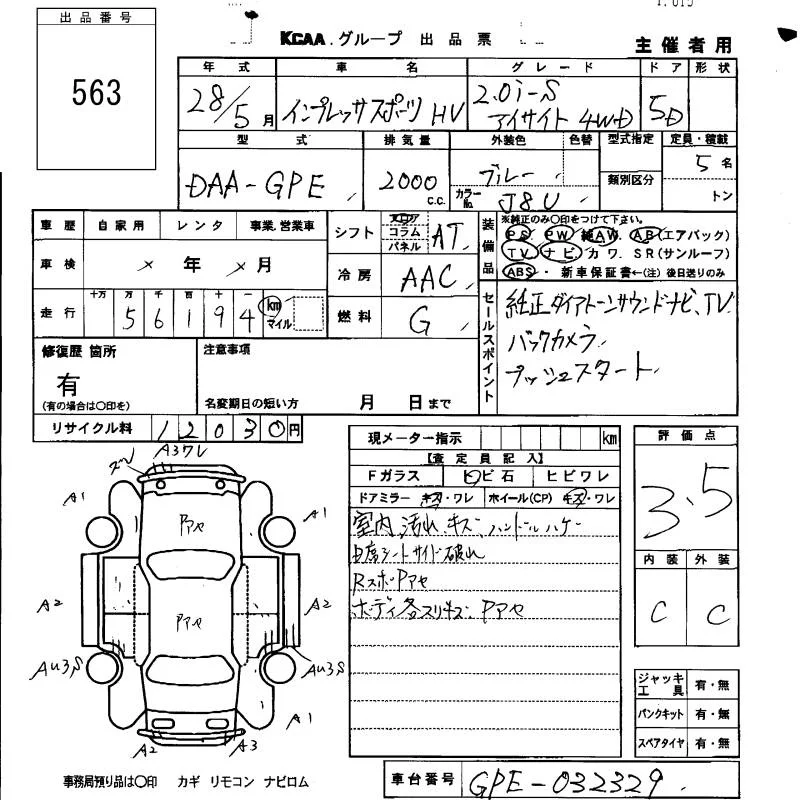 出品番号
563
KCAA.グループ 出品票
主催者用
年式 車名 グレード ドア 形状
28/5月 インプレッサスポーツ HV 2.0i-S アイサイト 4WD 5D
型式 排気量 外装色 色替 型式指定 定員・積載
DAA-GPE 2000 C.C. ブルー 類別区分 5名
カラーNo. J8U トン
車歴 自家用 レンタ 事業.営業車
シフト フロア コラム パネル AT
装備品 ※純正のみ〇印をつけて下さい。
PS PW 純AW. AB(エアバック)
TV ナビ. カワ. SR(サンルーフ)
ABS ・ 新車保証書←(注) 後日送りのみ
車検 × 年 × 月
冷房 AAC
走行 十万 万 千 百 十 一
5 6 1 9 4 km マイル
燃料 G
セールスポイント
純正ダイアトーンサウンドナビ、TV
バックカメラ
プッシュスタート
修復歴 箇所
有
(有の場合は〇印を)
注意事項
名変期日の短い方 月 日まで
リサイクル料 12030円
現メーター指示 km
【査定員記入】
Fガラス ヒビ石 ヒビワレ
ドアミラー キズ・ワレ ホイール(CP) キズ・ワレ
室内 汚れ キズ ハンドルハゲー
日席シートサイド破れ
RスポPアセ
ボディ各スリキズ Pアセ
評価点
3.5
内装 外装
C C
A3ワレ
A1
A1
Pアセ
A2
A2
Pアセ
AU3S
AU3S
A1
A2
A3
ジャッキ工具 有・無
パンクキット 有・無
スペアタイヤ 有・無
事務局預り品は〇印 カギ リモコン ナビロム
車台番号 GPE-032329